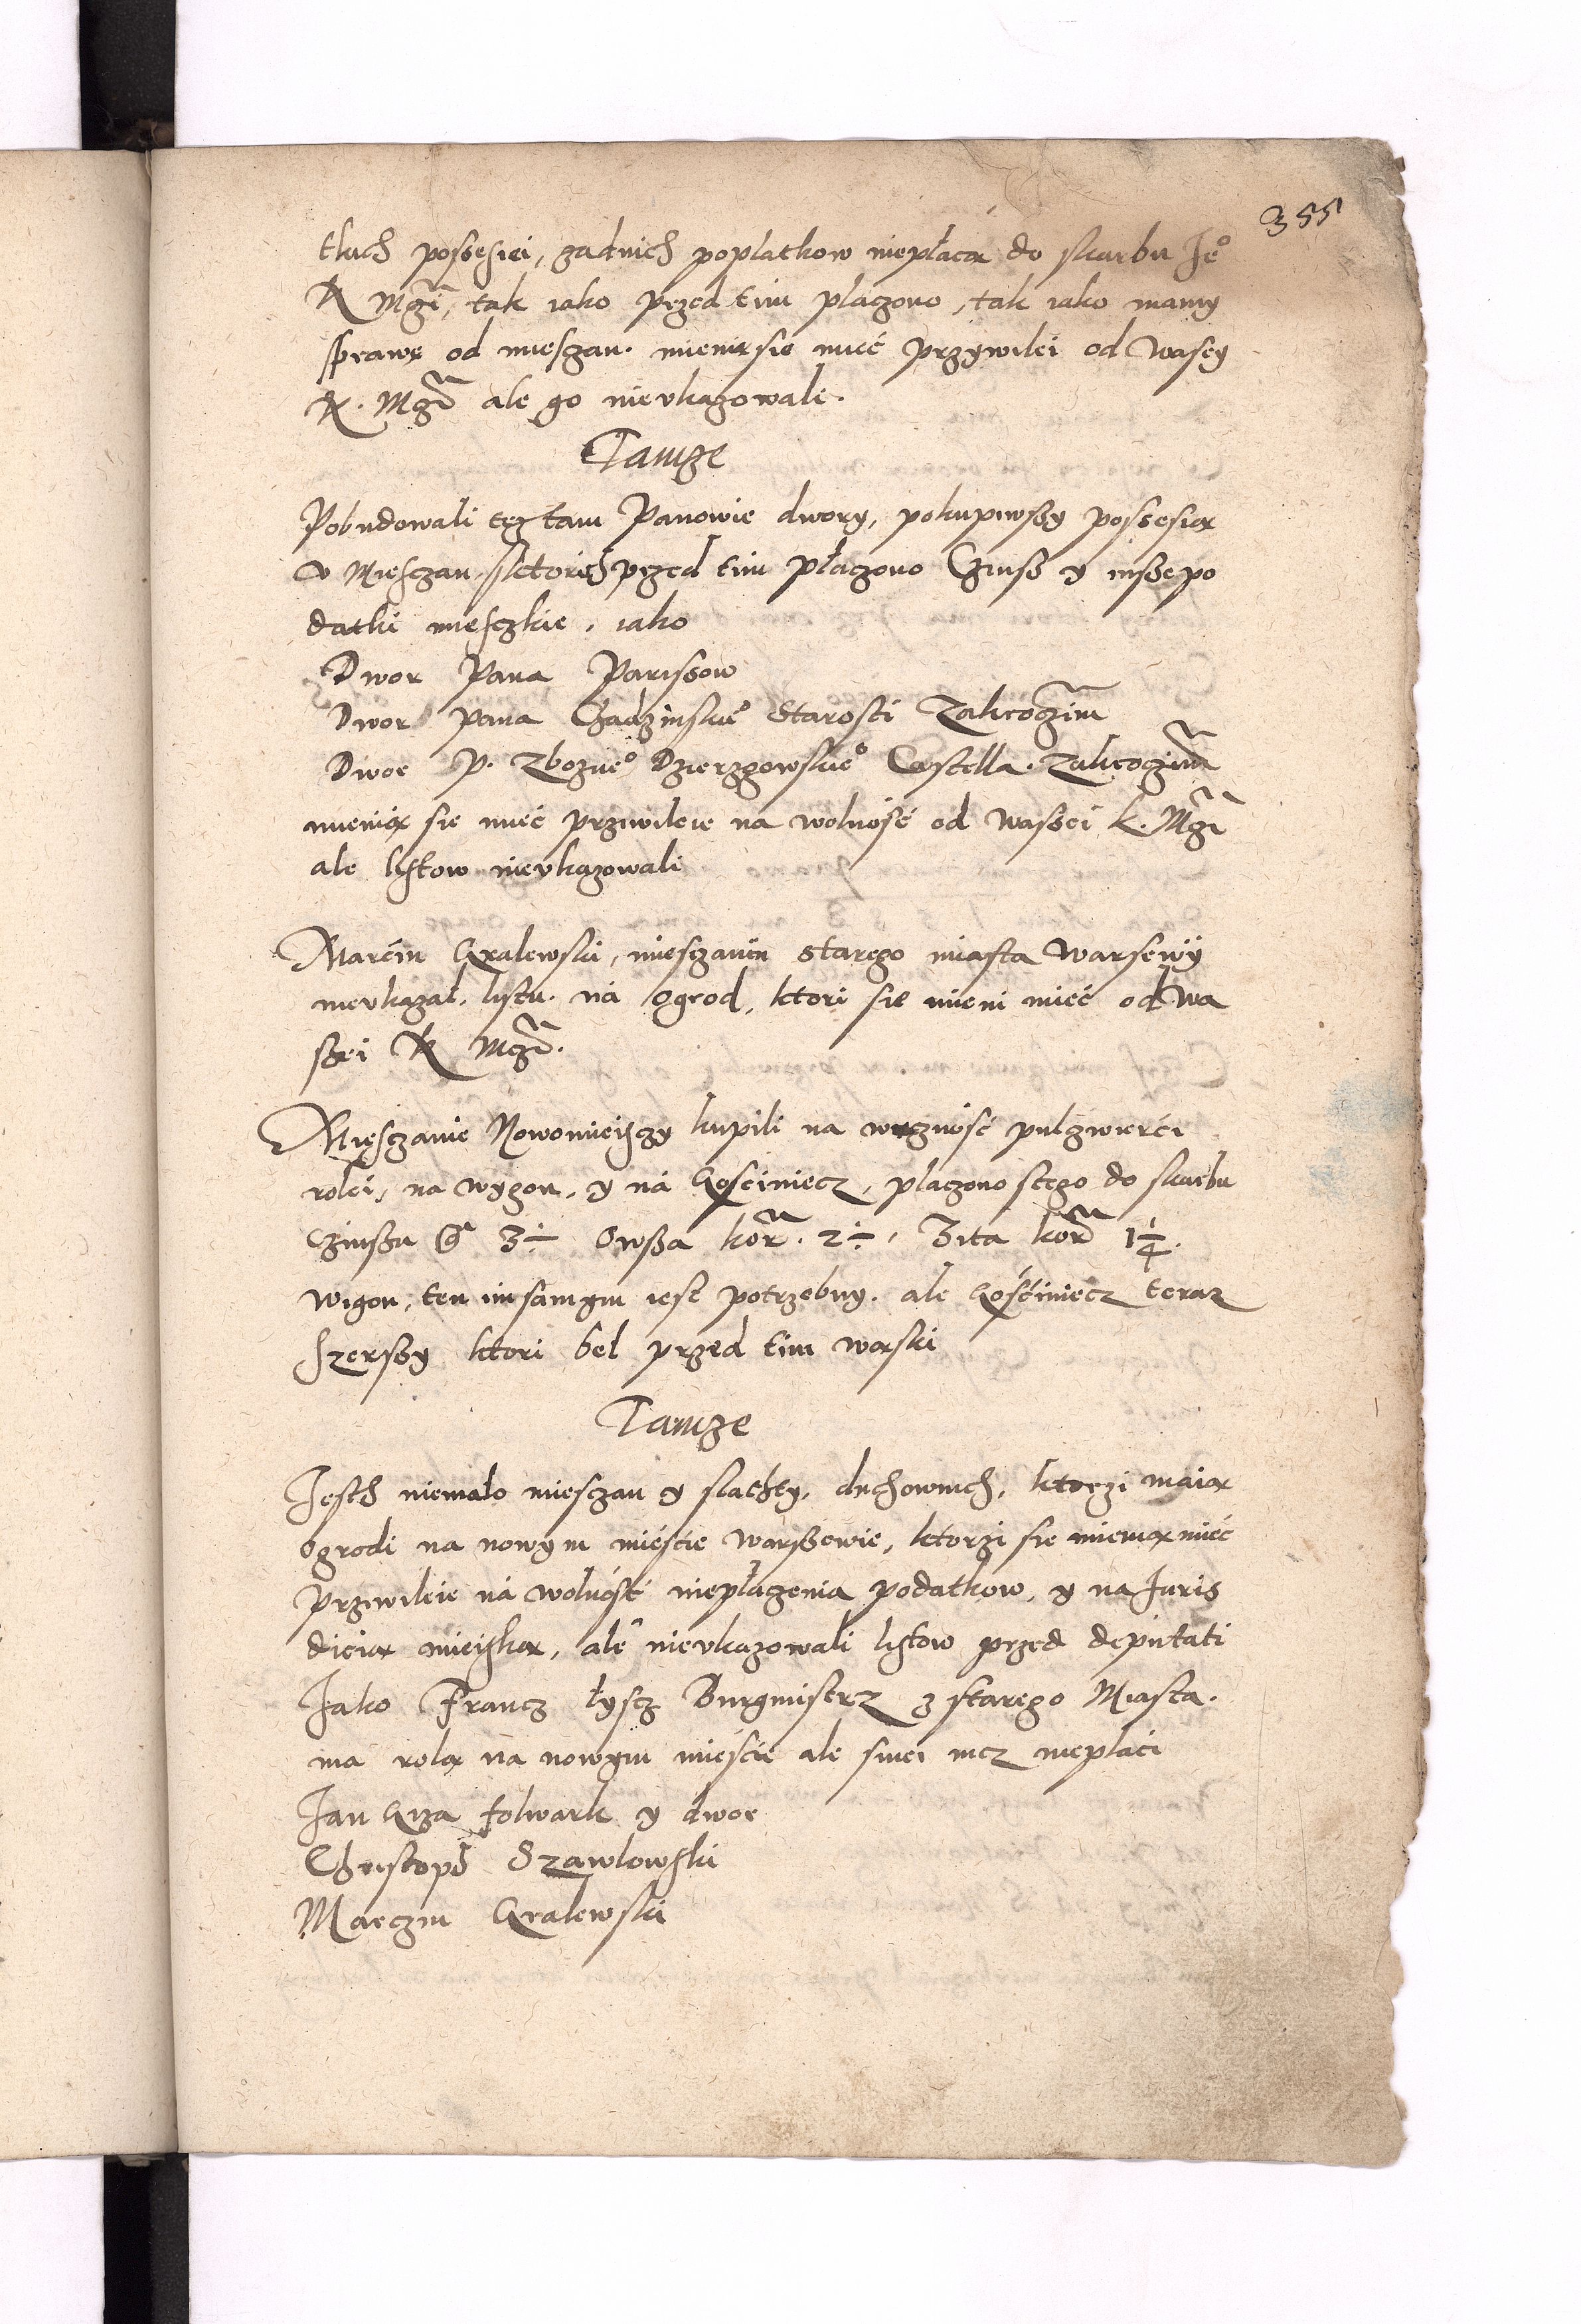 355
tkich possesiei, zadnich poplatkow nieplacą do skarbu Je°
K Mczi, tak iako przed tim placzono, tak iako mamy
sprawę od miesczan. mienią sie mieć przywilei od Wasey
K. Mczi ale go nieukazowali.
Tamze
Pobudowali tez tam Panowie dwory, pokupiwszy possesią
v Miesczan, sktorich przed tim płaczono Czinsz y insze po
datki miesczkie, iako
Dwor Pana Parissow
Dwor pana Gadzinskie° Starosti Zakroczim
Dwor P. Zbozne° Dzierzgowskie° Castella. Zakroczim
mienią sie mieć prziwileie na wolność od wassei k. Mczi
ale listow nieukazowali
Marcin Gralewski, miesczanin starego miasta Warsewy
nieukazał. listu. ná Ogrod, ktori sie mieni mieć od Wa
szei K Mczi.
Miesczanie Nowomieisczy kupili na wieczność pulczwierci
rolei, na wygon, y ná Gościniecz, placzono stego do skarbu
Czinszu gr 3÷ Owsza kor. 2÷, Zita kor 1 1/4.
Wigon, ten im samym iest potrzebny. ale Gościniecz teraz
szerszy ktori bel przed tim wąski
Tamze
Jesth niemalo miesczan y slachty, duchownich, ktorzi maią
Ogrodi na nowym mieście Warszewie, ktorzi sie mienią mieć
prziwileie ná wolność niepłaczenia podatkow, y na Juris
dicią mieiską, ale nieukazowali listow przed deputati
Jako Francz Łyscz Burgmistrz z starego Miasta.
ma rolą na nowym mieście ale sniei nicz nieplaci
Jan Giza folwark y dwor
Christoph Szawlowski
Marczin Gralewski